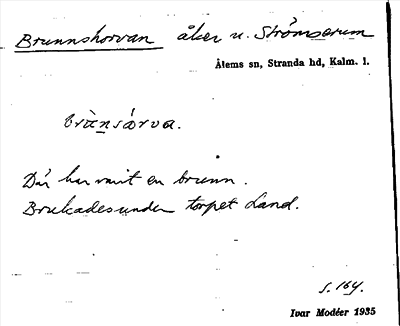 Brunnskorvan åker u. Strömserum
Åtems sn, Stranda hd, Kalm. l.
brùnsárva.
Där har varit en brunn.
Brukades under torpet Land.
s. 164.
Ivar Modéer 1935